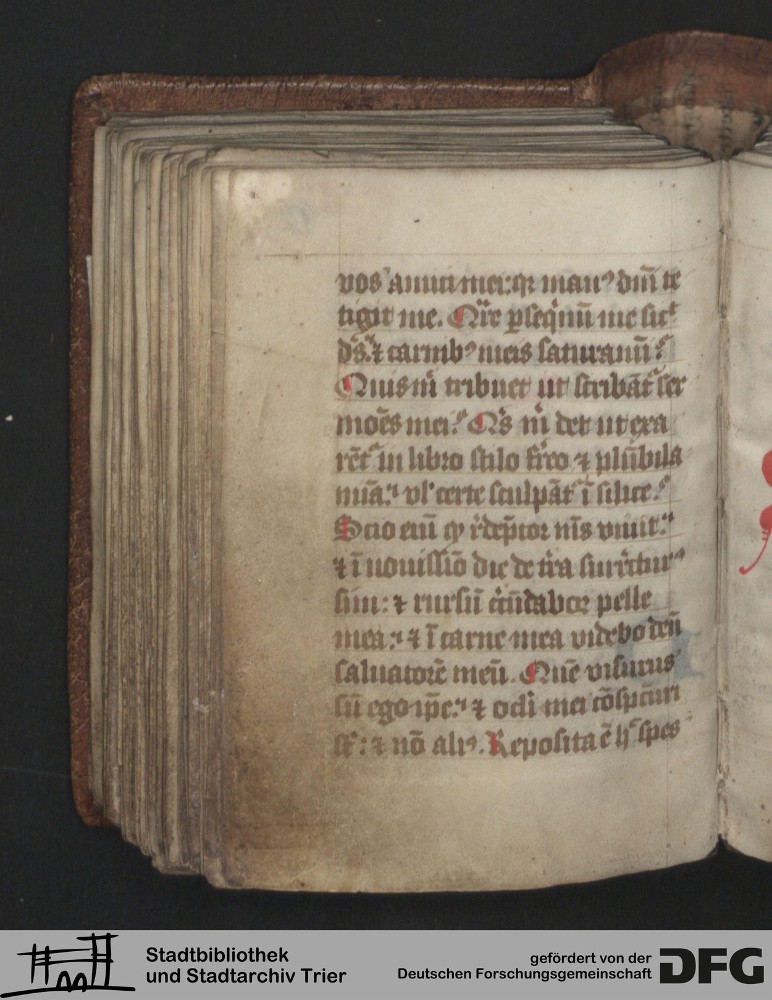 vos amici mei: qr manꝰ dnī te
tigit me. Qre pseqmī me sic
ds: ⁊ carnibꝰ meis saturamī?
Quis m tribuet ut scribāt ser
mōes mei? Qs m det ut exa
rēt in libro stilo frēo ⁊ plūbi la
mīa: vl certe sculpāt ī silice?
Scio eni qp rdēptor ms viuit:
⁊ ī nouissīo die de tra surrcturꝰ
sim: ⁊ rursū cr̄cūdabor pelle
mea: ⁊ ī carne mea videbo deū
saluatorē meū. Quē visurus
sū ego ipe: ⁊ ocli mei cōspcturi
st: ⁊ nō aliꝰ. Reposita ē h spes
Stadtbibliothek
und Stadtarchiv Trier
gefördert von der
Deutschen Forschungsgemeinschaft
DFG